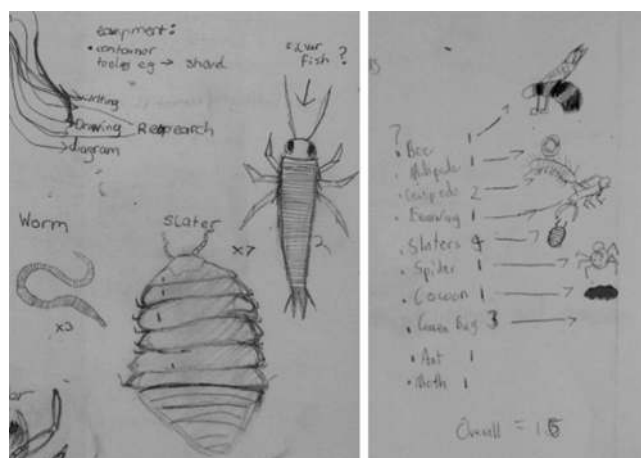 eqmpment:
• container
tooles eg → shovel
silver
fish ?
writing
Drawing
Research
diagram
Worm
Slater
x7
2
x3
?
• Bee 1
• Milipede 1
• Centipede 2
• Earwig 1
• Slaters 4
• Spider 1
• Cocoon 1
• Green Bug 3
• Ant 1
• Moth 1
Overall = 15